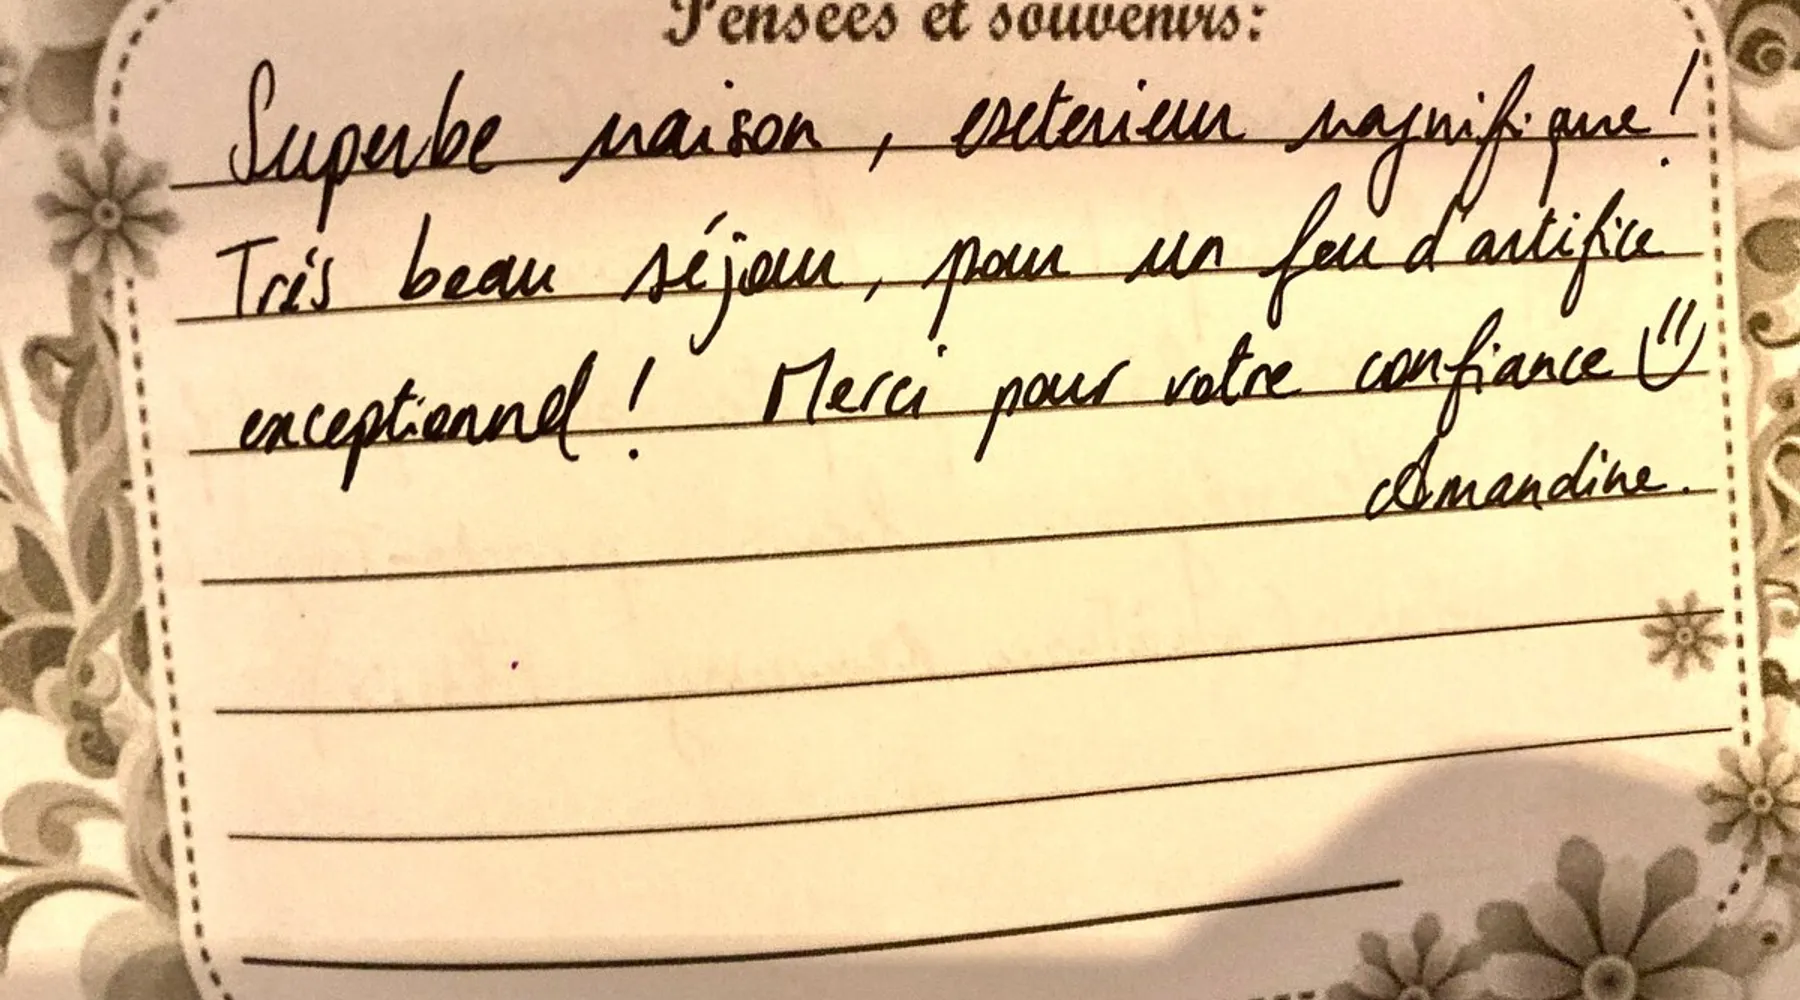 Pensées et souvenirs:
Superbe maison, exterieur magnifique!
Trés beau séjour, pour un feu d'artifice
exceptionnel! Merci pour votre confiance
Amandine.